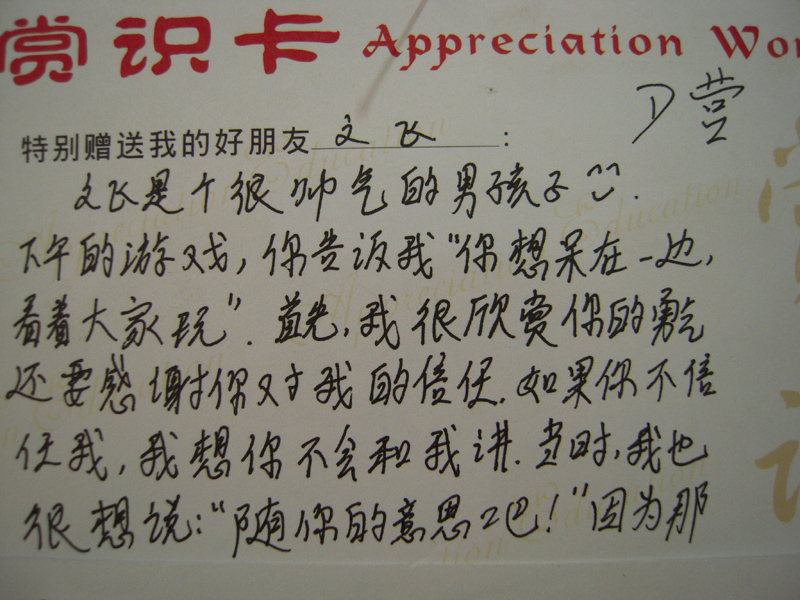 赏识卡 Appreciation Wor
D营
特别赠送我的好朋友 文飞 :
文飞是个很帅气的男孩子
下午的游戏,你告诉我“你想呆在一边,
看着大家玩”.首先,我很欣赏你的勇气
还要感谢你对我的信任.如果你不信
任我,我想你不会和我讲.当时,我也
很想说:“随你的意思吧!”因为那